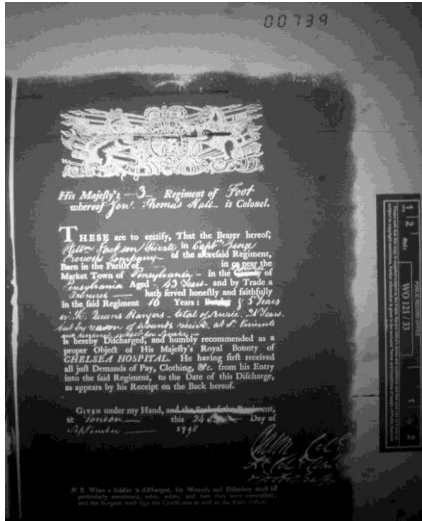 00739
His Majesty's 3 Regiment of Foot
whereof Gen. Thomas Hall is Colonel.
THESE are to certify, That the Bearer hereof,
Jackson Private in Captn. George
Company of the aforesaid Regiment,
Born in the Parish of in or near the
Market Town of Pensylvania in the County of
Pensylvania Aged 43 Years and by Trade a
Labourer hath served honestly and faithfully
in the said Regiment 16 Years; 8 Years
in Queens Rangers total of service Years.
but by reason of wounds at St.
is hereby Discharged, and humbly recommended as a
proper Object of His Majesty's Royal Bounty of
CHELSEA HOSPITAL. He having first received
all just Demands of Pay, Clothing, &c. from his Entry
into the said Regiment, to the Date of this Discharge,
as appears by his Receipt on the Back hereof.
GIVEN under my Hand, and the Seal of the Regiment,
at London this 24 Day of
September 1798
N. B. When a Soldier is discharged, his Wounds and Disorders must be
particularly mentioned, when, where, and how they were contracted;
and the Surgeon must sign the Certificate as well as the Field Officer.
1 2
WO 121 / 33
1 2